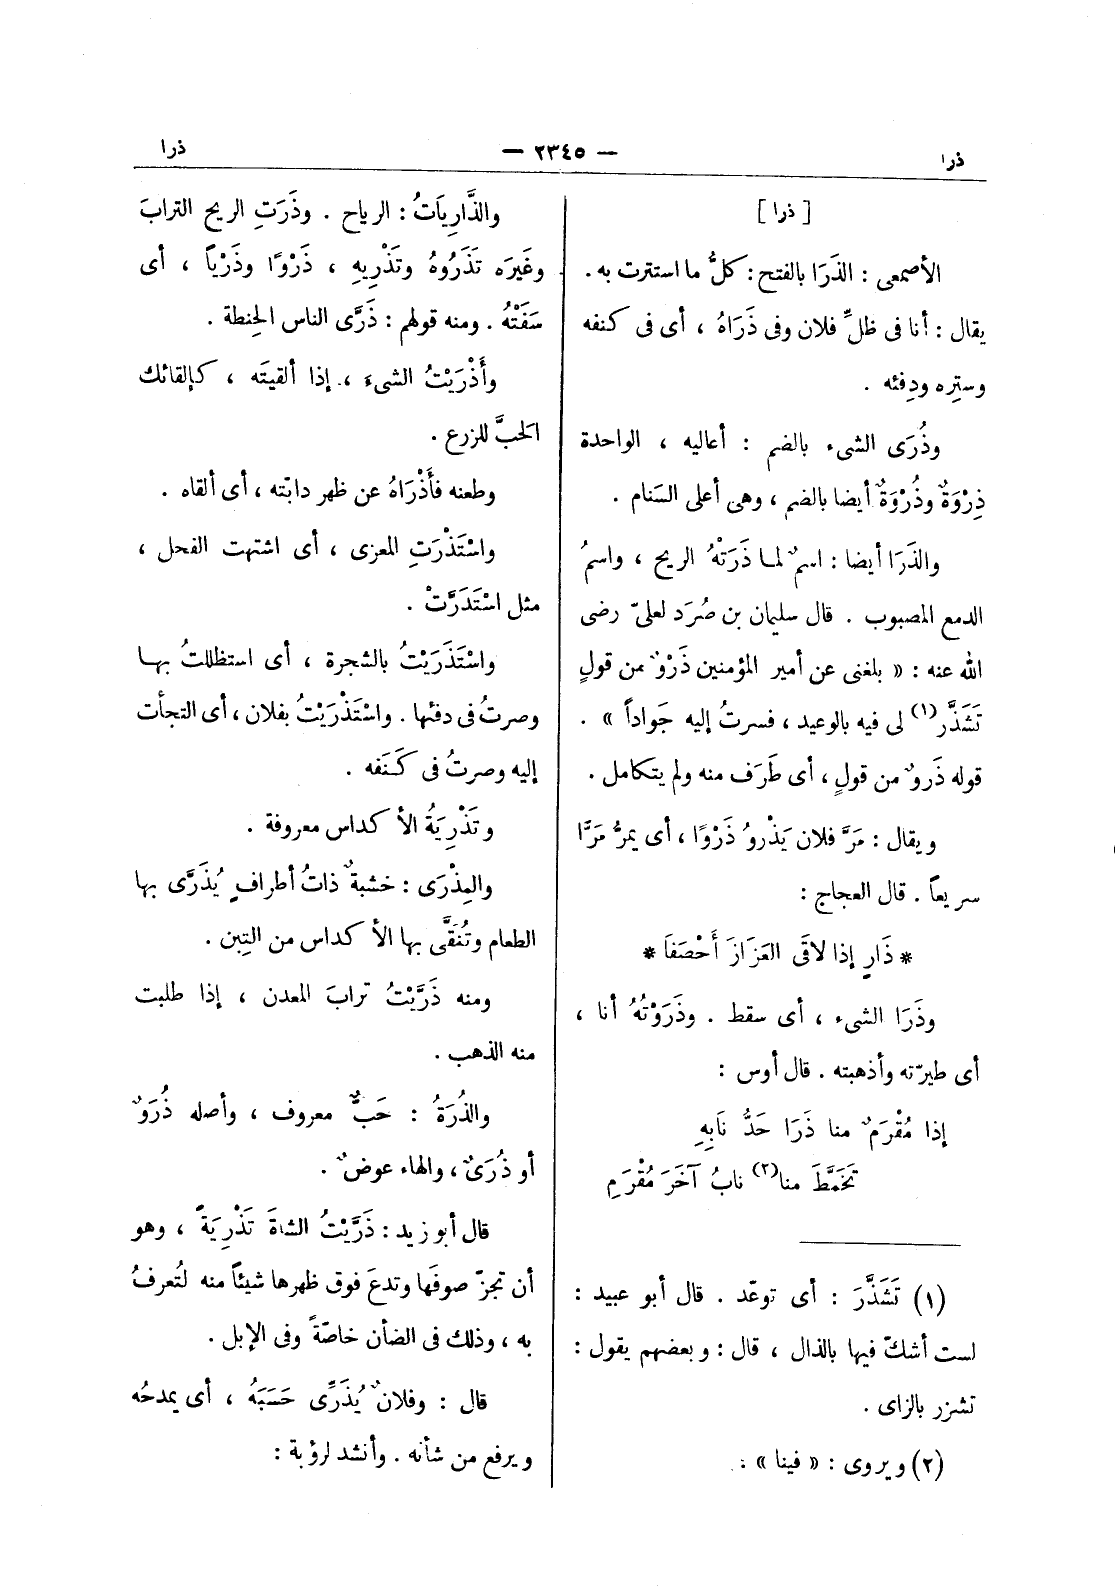 ذرا
— ٢٣٤٥ —
ذرا
[ ذرا ]
الأصمعى : الذَرَا بالفتح : كلُّ ما استترت به .
يقال : أنا فى ظلِّ فلان وفى ذَرَاهُ ، أى فى كنفه
وستِره ودِفئه .
وذُرَى الشىء بالضم : أعاليه ، الواحدة
ذِرْوَةٌ وذُرْوَةٌ أيضا بالضم ، وهى أعلى السَنام .
والذَرَا أيضا : اسمٌ لما ذَرَتْهُ الريح ، واسمُ
الدمع المصبوب . قال سليمان بن صُرَد لعلىّ رضى
الله عنه : « بلغنى عن أمير المؤمنين ذَرْوٌ من قولٍ
تَشَذَّر(١) لى فيه بالوعيد ، فسرتُ إليه جَواداً » .
قوله ذَروٌ من قولٍ ، أى طَرَف منه ولم يتكامل .
ويقال : مَرَّ فلان يَذْرو ذَرْوًا ، أى يمرُّ مَرًّا
سريعاً . قال العجاج :
* ذَارٍ إذا لاقَى العَزَازَ أَحْصَفَا *
وذَرَا الشىء ، أى سقط . وذَرَوْتُهُ أنا ،
أى طيرّته وأذهبته . قال أوس :
إذا مُقْرَمٌ منا ذَرَا حَدُّ نَابِهِ
تَخَمَّطَ منا(٢) نابُ آخَرَ مُقْرَمِ
(١) تَشَذَّرَ : أى توعّد . قال أبو عبيد :
لست أشكّ فيها بالذال ، قال : وبعضهم يقول :
تشزر بالزاى .
(٢) ويروى : « فينا » .
والذَّارِيَاتُ : الرياح . وذَرَتِ الريح الترابَ
وغَيرَه تَذْرُوهُ وتَذْرِيهِ ، ذَرْوًا وذَرْياً ، أى
سَفَتْهُ . ومنه قولهم : ذَرَّى الناس الحِنطة .
وأَذْرَيْتُ الشىءَ ، إذا ألقيتَه ، كإلقائك
الحَبَّ للزرع .
وطعنه فأَذْرَاهُ عن ظهر دابّته ، أى ألقاه .
واسْتَذْرَتِ المعزى ، أى اشتهت الفحل ،
مثل اسْتَدَرَّتْ .
واسْتَذَرَيْتُ بالشجرة ، أى استظللتُ بها
وصرتُ فى دفئها . واسْتَذْرَيْتُ بفلان ، أى التجأت
إليه وصرتُ فى كَنَفه .
وتَذْرِيَةُ الأكداس معروفة .
والمِذْرَى : خشبةٌ ذاتُ أطرافٍ يُذَرَّى بها
الطعام وتُنَقَّى بها الأكداس من التِبن .
ومنه ذَرَّيْتُ ترابَ المعدن ، إذا طلبت
منه الذهب .
والذُرَةُ : حَبٌّ معروف ، وأصله ذُرَوٌ
أو ذُرَىٌ ، والهاء عوضٌ .
قال أبو زيد : ذَرَّيْتُ الشاةَ تَذْرِيَةً ، وهو
أن تجزّ صوفَها وتدعَ فوق ظهرها شيئاً منه لتُعرفُ
به ، وذلك فى الضأن خاصّةً وفى الإبل .
قال : وفلانٌ يُذَرِّى حَسَبَهُ ، أى يمدحُه
ويرفع من شأنه . وأنشد لرؤبة :